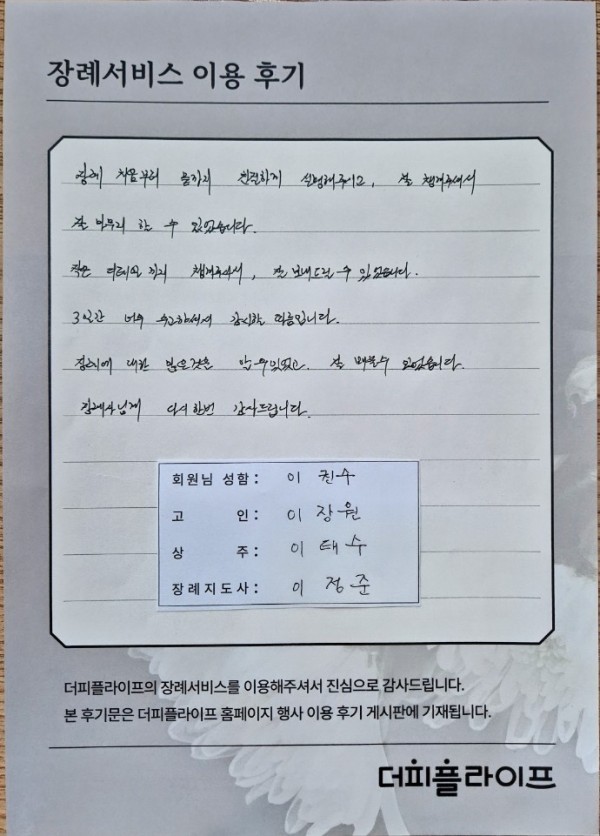 장례서비스 이용 후기
장례 처음부터 끝까지 친절하게 설명해주시고, 잘 챙겨주셔서
잘 마무리 할 수 있었습니다.
작은 디테일 까지 챙겨주셔서, 잘 보내드릴 수 있었습니다.
3일간 너무 수고하셔서 감사할 따름입니다.
장례에 대한 많은것을 알 수 있었고, 잘 배울수 있었습니다.
다시한번 감사드립니다.
회원님 성함: 이 권수
고 인: 이 장원
상 주: 이 태수
장례지도사: 이 정준
더피플라이프의 장례서비스를 이용해주셔서 진심으로 감사드립니다.
본 후기문은 더피플라이프 홈페이지 행사 이용 후기 게시판에 기재됩니다.
더피플라이프